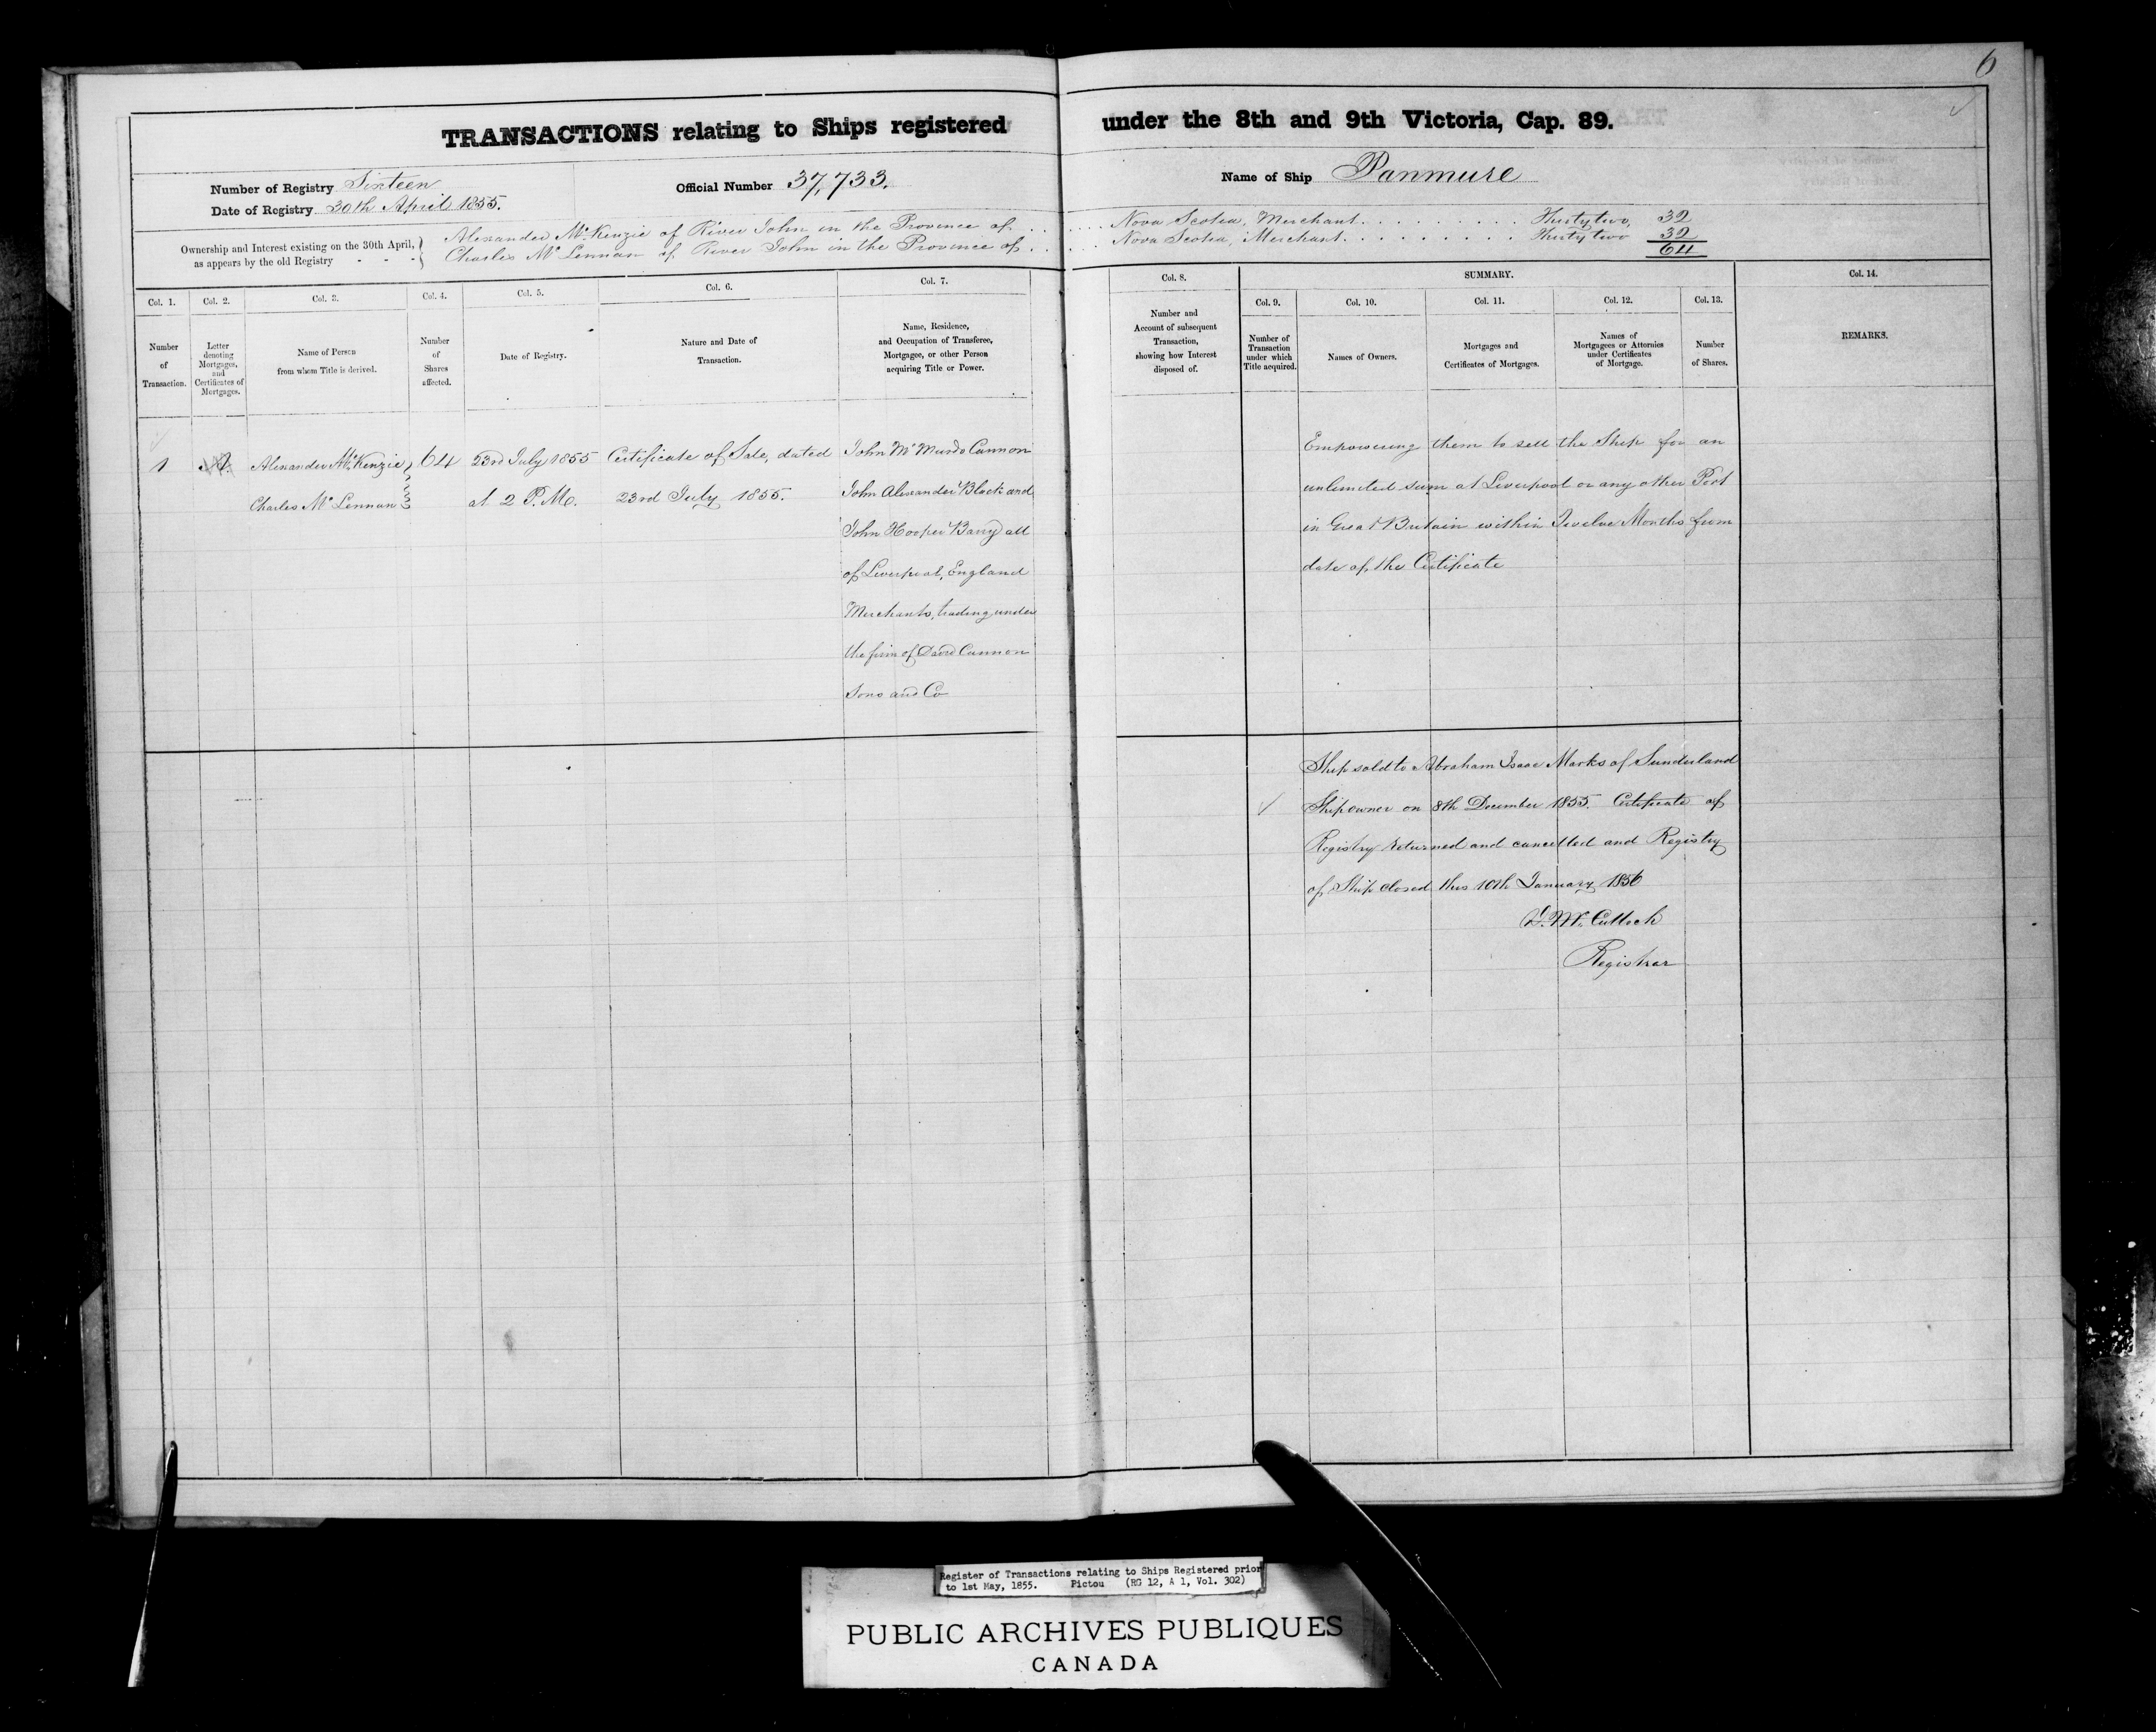 6
TRANSACTIONS relating to Ships registered under the 8th and 9th Victoria, Cap. 89.
Number of Registry Sixteen
Date of Registry 30th April 1855.
Official Number 37,733.
Name of Ship Panmure
Ownership and Interest existing on the 30th April,
as appears by the old Registry - - -
Alexander McKenzie of River John in the Province of . . . . . Nova Scotia, Merchant . . . . . . . . . Thirty two, 32
Charles McLennan of River John in the Province of . . . . . Nova Scotia, Merchant . . . . . . . . . Thirty two 32
64
Col. 1.
Number
of
Transaction.
Col. 2.
Letter
denoting
Mortgages,
and
Certificates of
Mortgages.
Col. 3.
Name of Person
from whom Title is derived.
Col. 4.
Number
of
Shares
affected.
Col. 5.
Date of Registry.
Col. 6.
Nature and Date of
Transaction.
Col. 7.
Name, Residence,
and Occupation of Transferee,
Mortgagee, or other Person
acquiring Title or Power.
Col. 8.
Number and
Account of subsequent
Transaction,
showing how Interest
disposed of.
SUMMARY.
Col. 9.
Number of
Transaction
under which
Title acquired.
Col. 10.
Names of Owners.
Col. 11.
Mortgages and
Certificates of Mortgages.
Col. 12.
Names of
Mortgagees or Attornies
under Certificates
of Mortgage.
Col. 13.
Number
of Shares.
Col. 14.
REMARKS.
1
Alexander McKenzie,
Charles McLennan
64
23rd July 1855
at 2 P.M.
Certificate of Sale, dated
23rd July 1855.
John McMurdo Cannon
John Alexander Black and
John Hooper Barry all
of Liverpool, England
Merchants, trading under
the firm of David Cannon
Sons and Co
Empowering them to sell the Ship for an
unlimited sum at Liverpool or any other Port
in Great Britain within Twelve Months from
date of the Certificate
Ship sold to Abraham Isaac Marks of Sunderland
Shipowner on 8th December 1855. Certificate of
Registry returned and cancelled and Registry
of Ship closed this 10th January 1856
McCulloch
Registrar
Register of Transactions relating to Ships Registered prior
to 1st May, 1855. Pictou (RG 12, A 1, Vol. 302)
PUBLIC ARCHIVES PUBLIQUES
CANADA